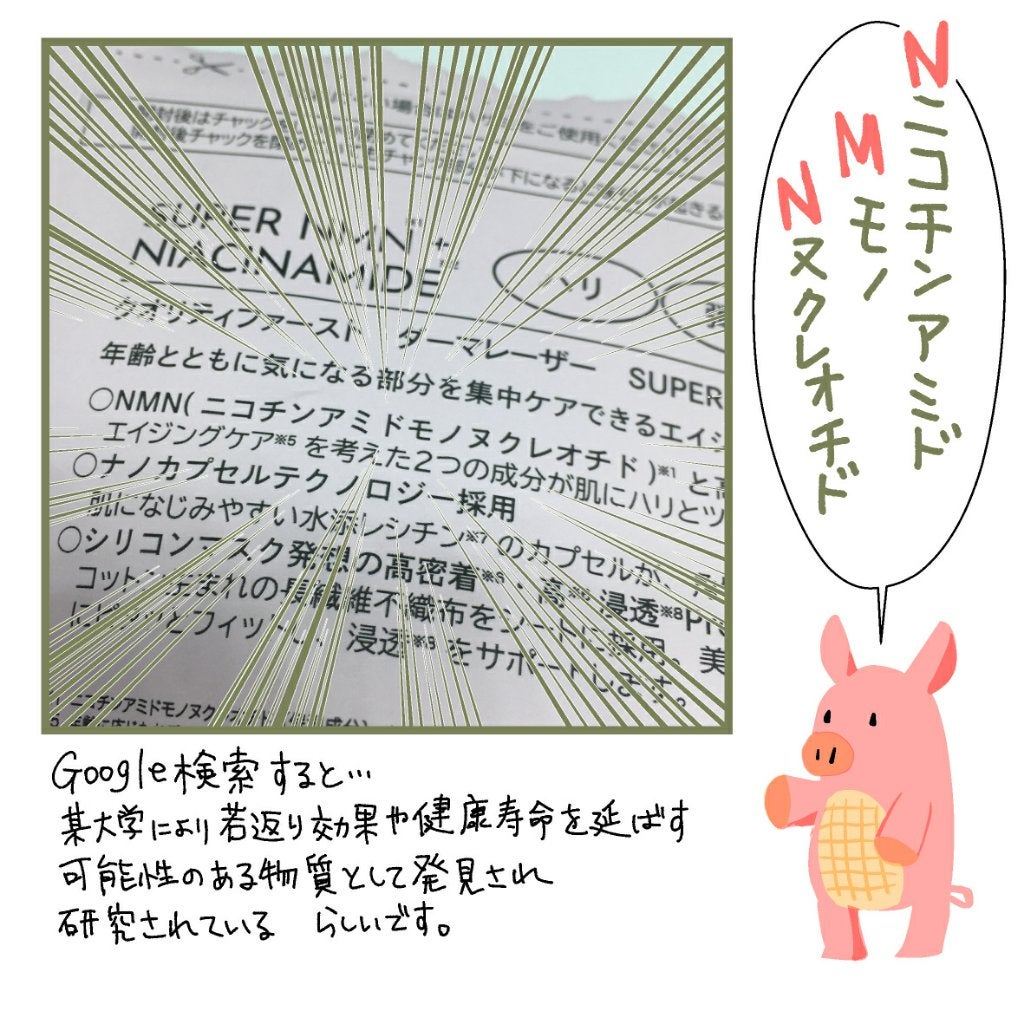 Nニコチンアミド
Mモノ
Nヌクレオチド
SUPER NMN※1 +
NIACINAMIDE※2
ハリ
クオリティファースト ダーマレーザー SUPER
年齢とともに気になる部分を集中ケアできるエイジ
○NMN(ニコチンアミドモノヌクレオチド)※1 と高
エイジングケア※5 を考えた2つの成分が肌にハリとツ
○ナノカプセルテクノロジー採用
肌になじみやすい水添レシチン※7 のカプセルが、
○シリコンマスク発想の高密着 浸透※8
コットン生まれの長繊維不織布をシートに採用。美
フィット 浸透 をサポートします。
ニコチンアミドモノヌク
Google検索すると…
某大学により若返り効果や健康寿命を延ばす
可能性のある物質として発見され
研究されている らしいです。